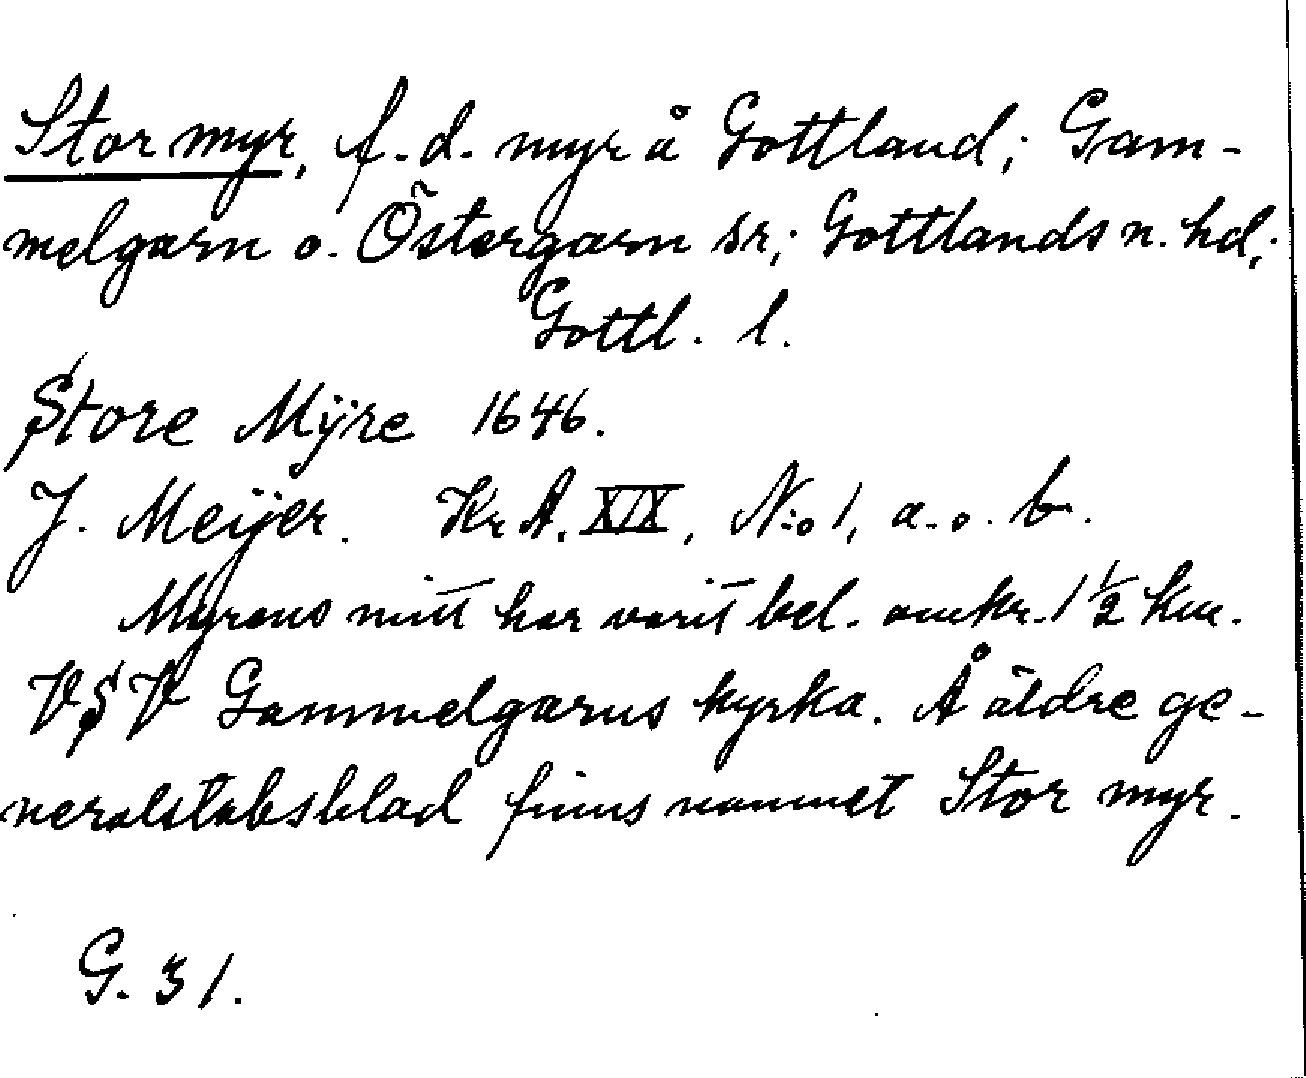 Stor myr, f.d. myr å Gottland; Gam-
melgarn o. Östergarn sr; Gottlands n. hd;
Gottl. l.
Store Mÿre 1646.
J. Meijer. Kr A. XIX, N:o 1, a. o. b.
Myrens mitt har varit bel. omkr. 1 1/2 km.
VSV Gammelgarns kyrka. Å äldre ge-
neralstabsblad finns namnet Stor myr.
G. 31.